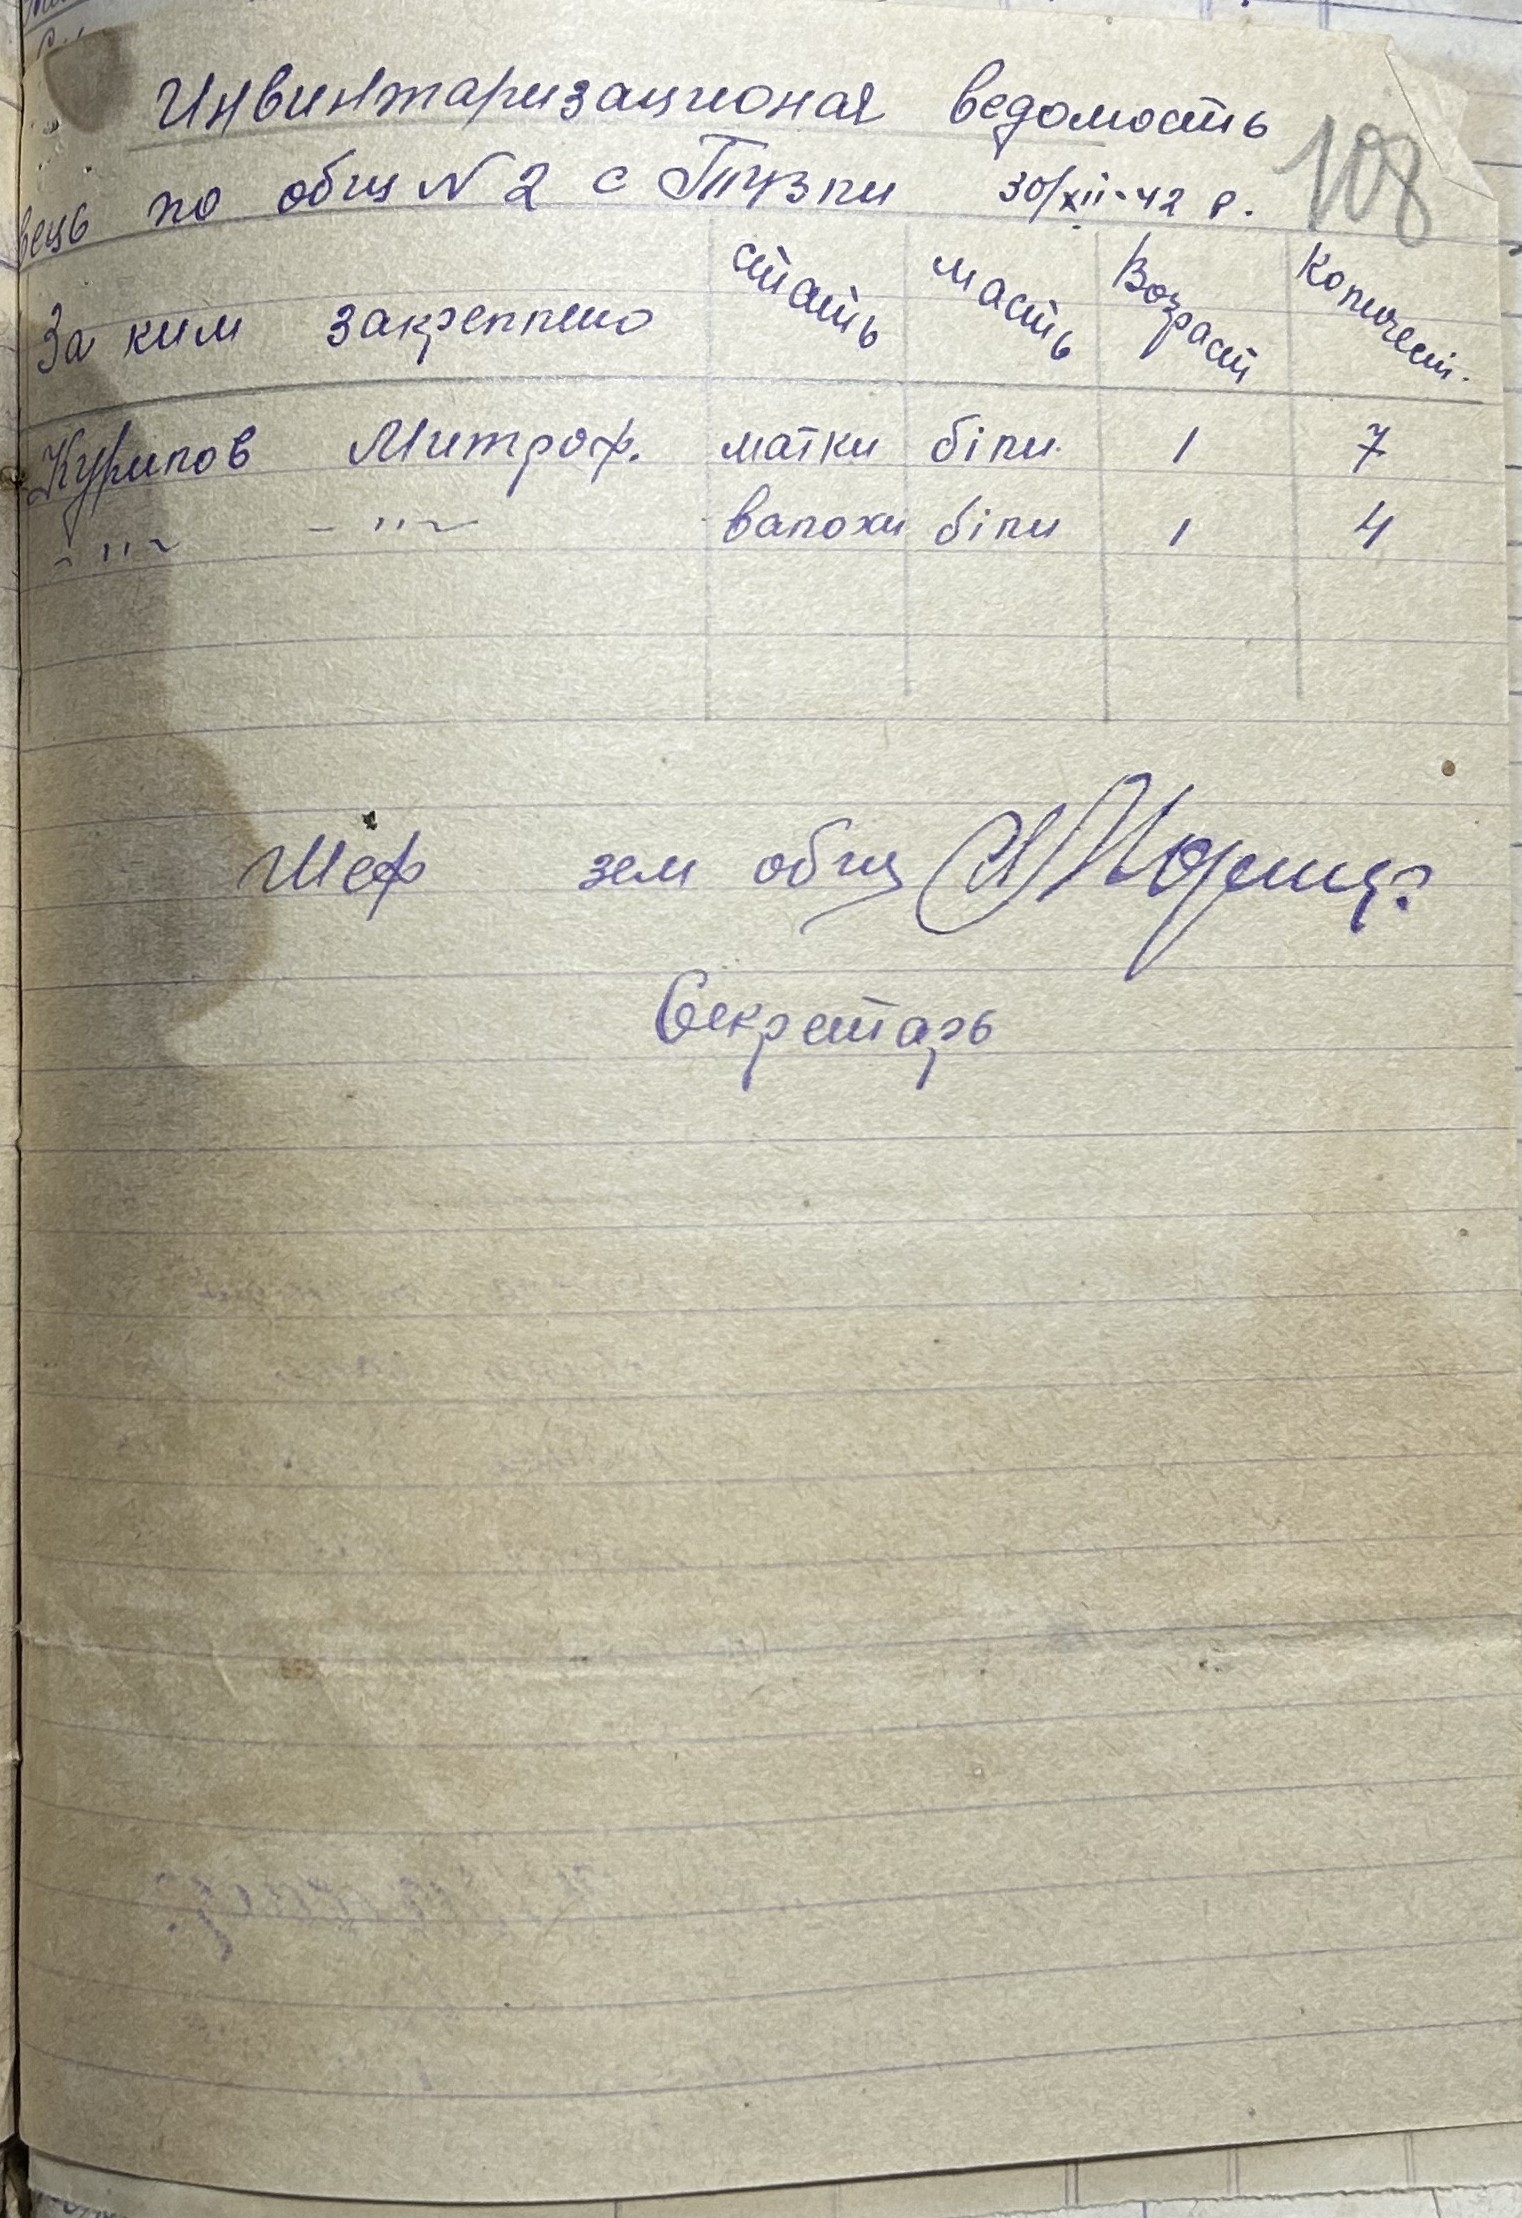 Инвинтаризационая ведомость
108
вець по общ N 2 с Тузли 30/XII-42 р.
За ким закреплено стать масть Возраст Количест.
Курилов Митроф. матки білі 1 7
-"- -"- валохи білі 1 4
Шеф зем общ
Секретарь